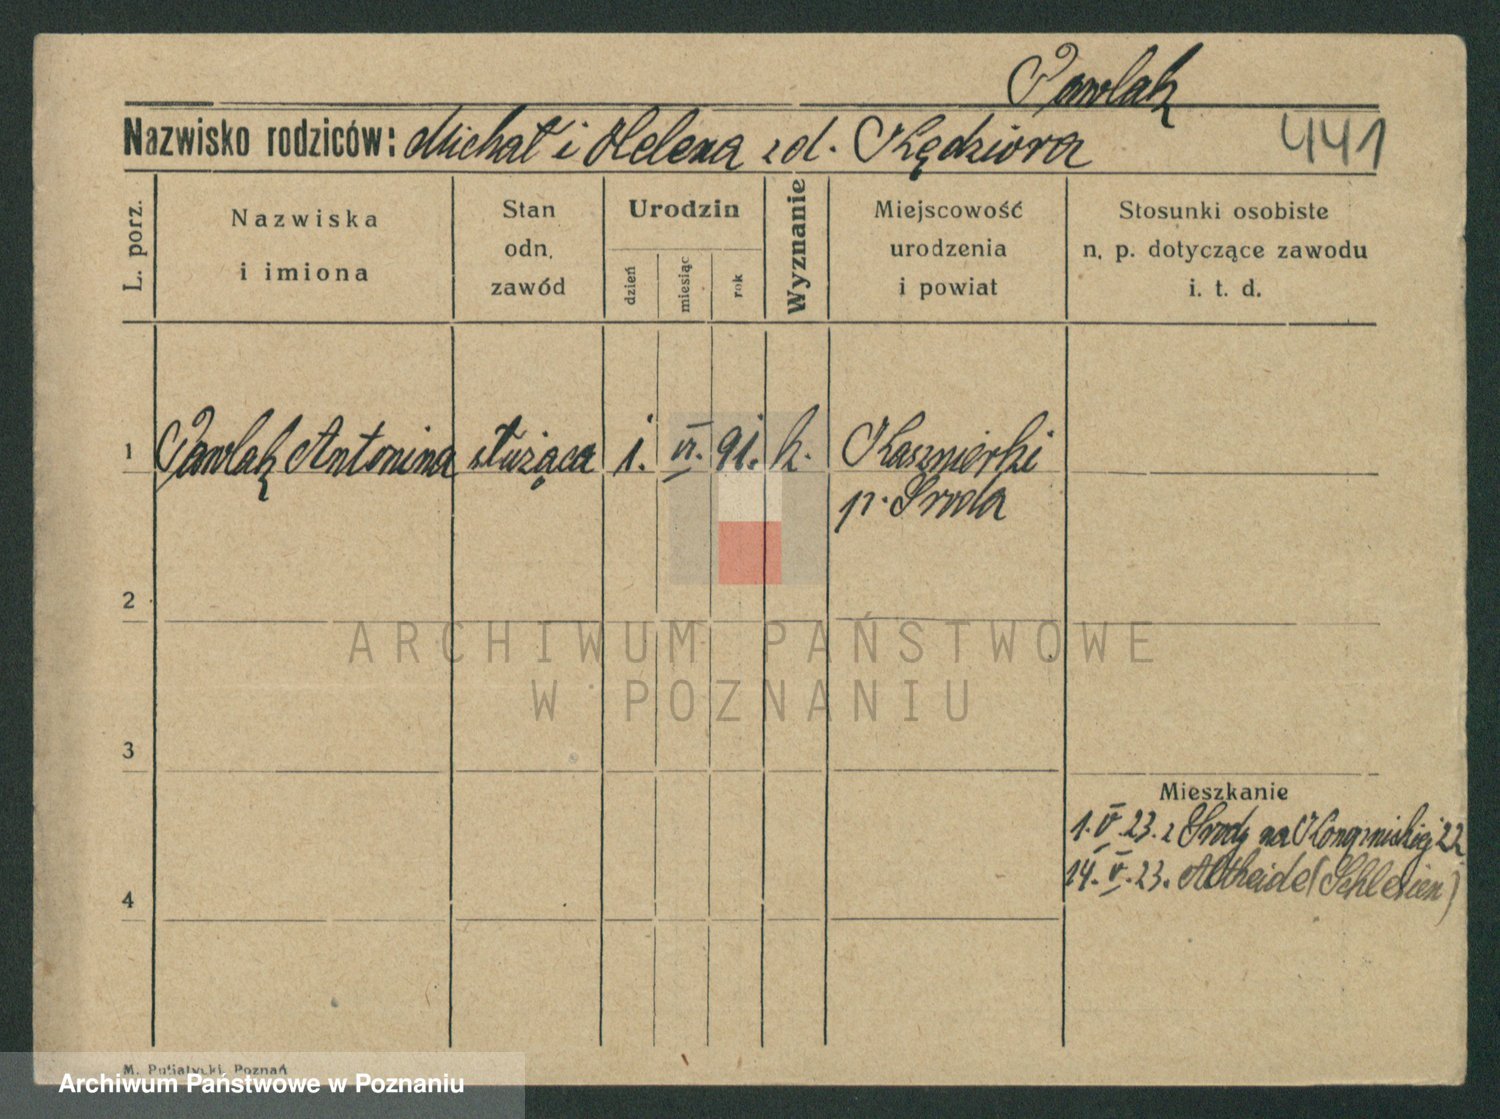 Pawlak
Nazwisko rodziców: Michał i Helena z d. Kędziora
441
L. porz.
Nazwiska
i imiona
Stan
odn.
zawód
Urodzin
dzień
miesiąc
rok
Wyznanie
Miejscowość
urodzenia
i powiat
Stosunki osobiste
n. p. dotyczące zawodu
i. t. d.
1 Pawlak Antonina służąca 1. VI. 91. k. Kaźmierki
p. Sroda
2
ARCHIWUM PAŃSTWOWE
W POZNANIU
3
Mieszkanie
1. V. 23. z Srody na 22
14. V. 23. Altheide (Schlesien)
4
M. Putiatycki, Poznań
Archiwum Państwowe w Poznaniu